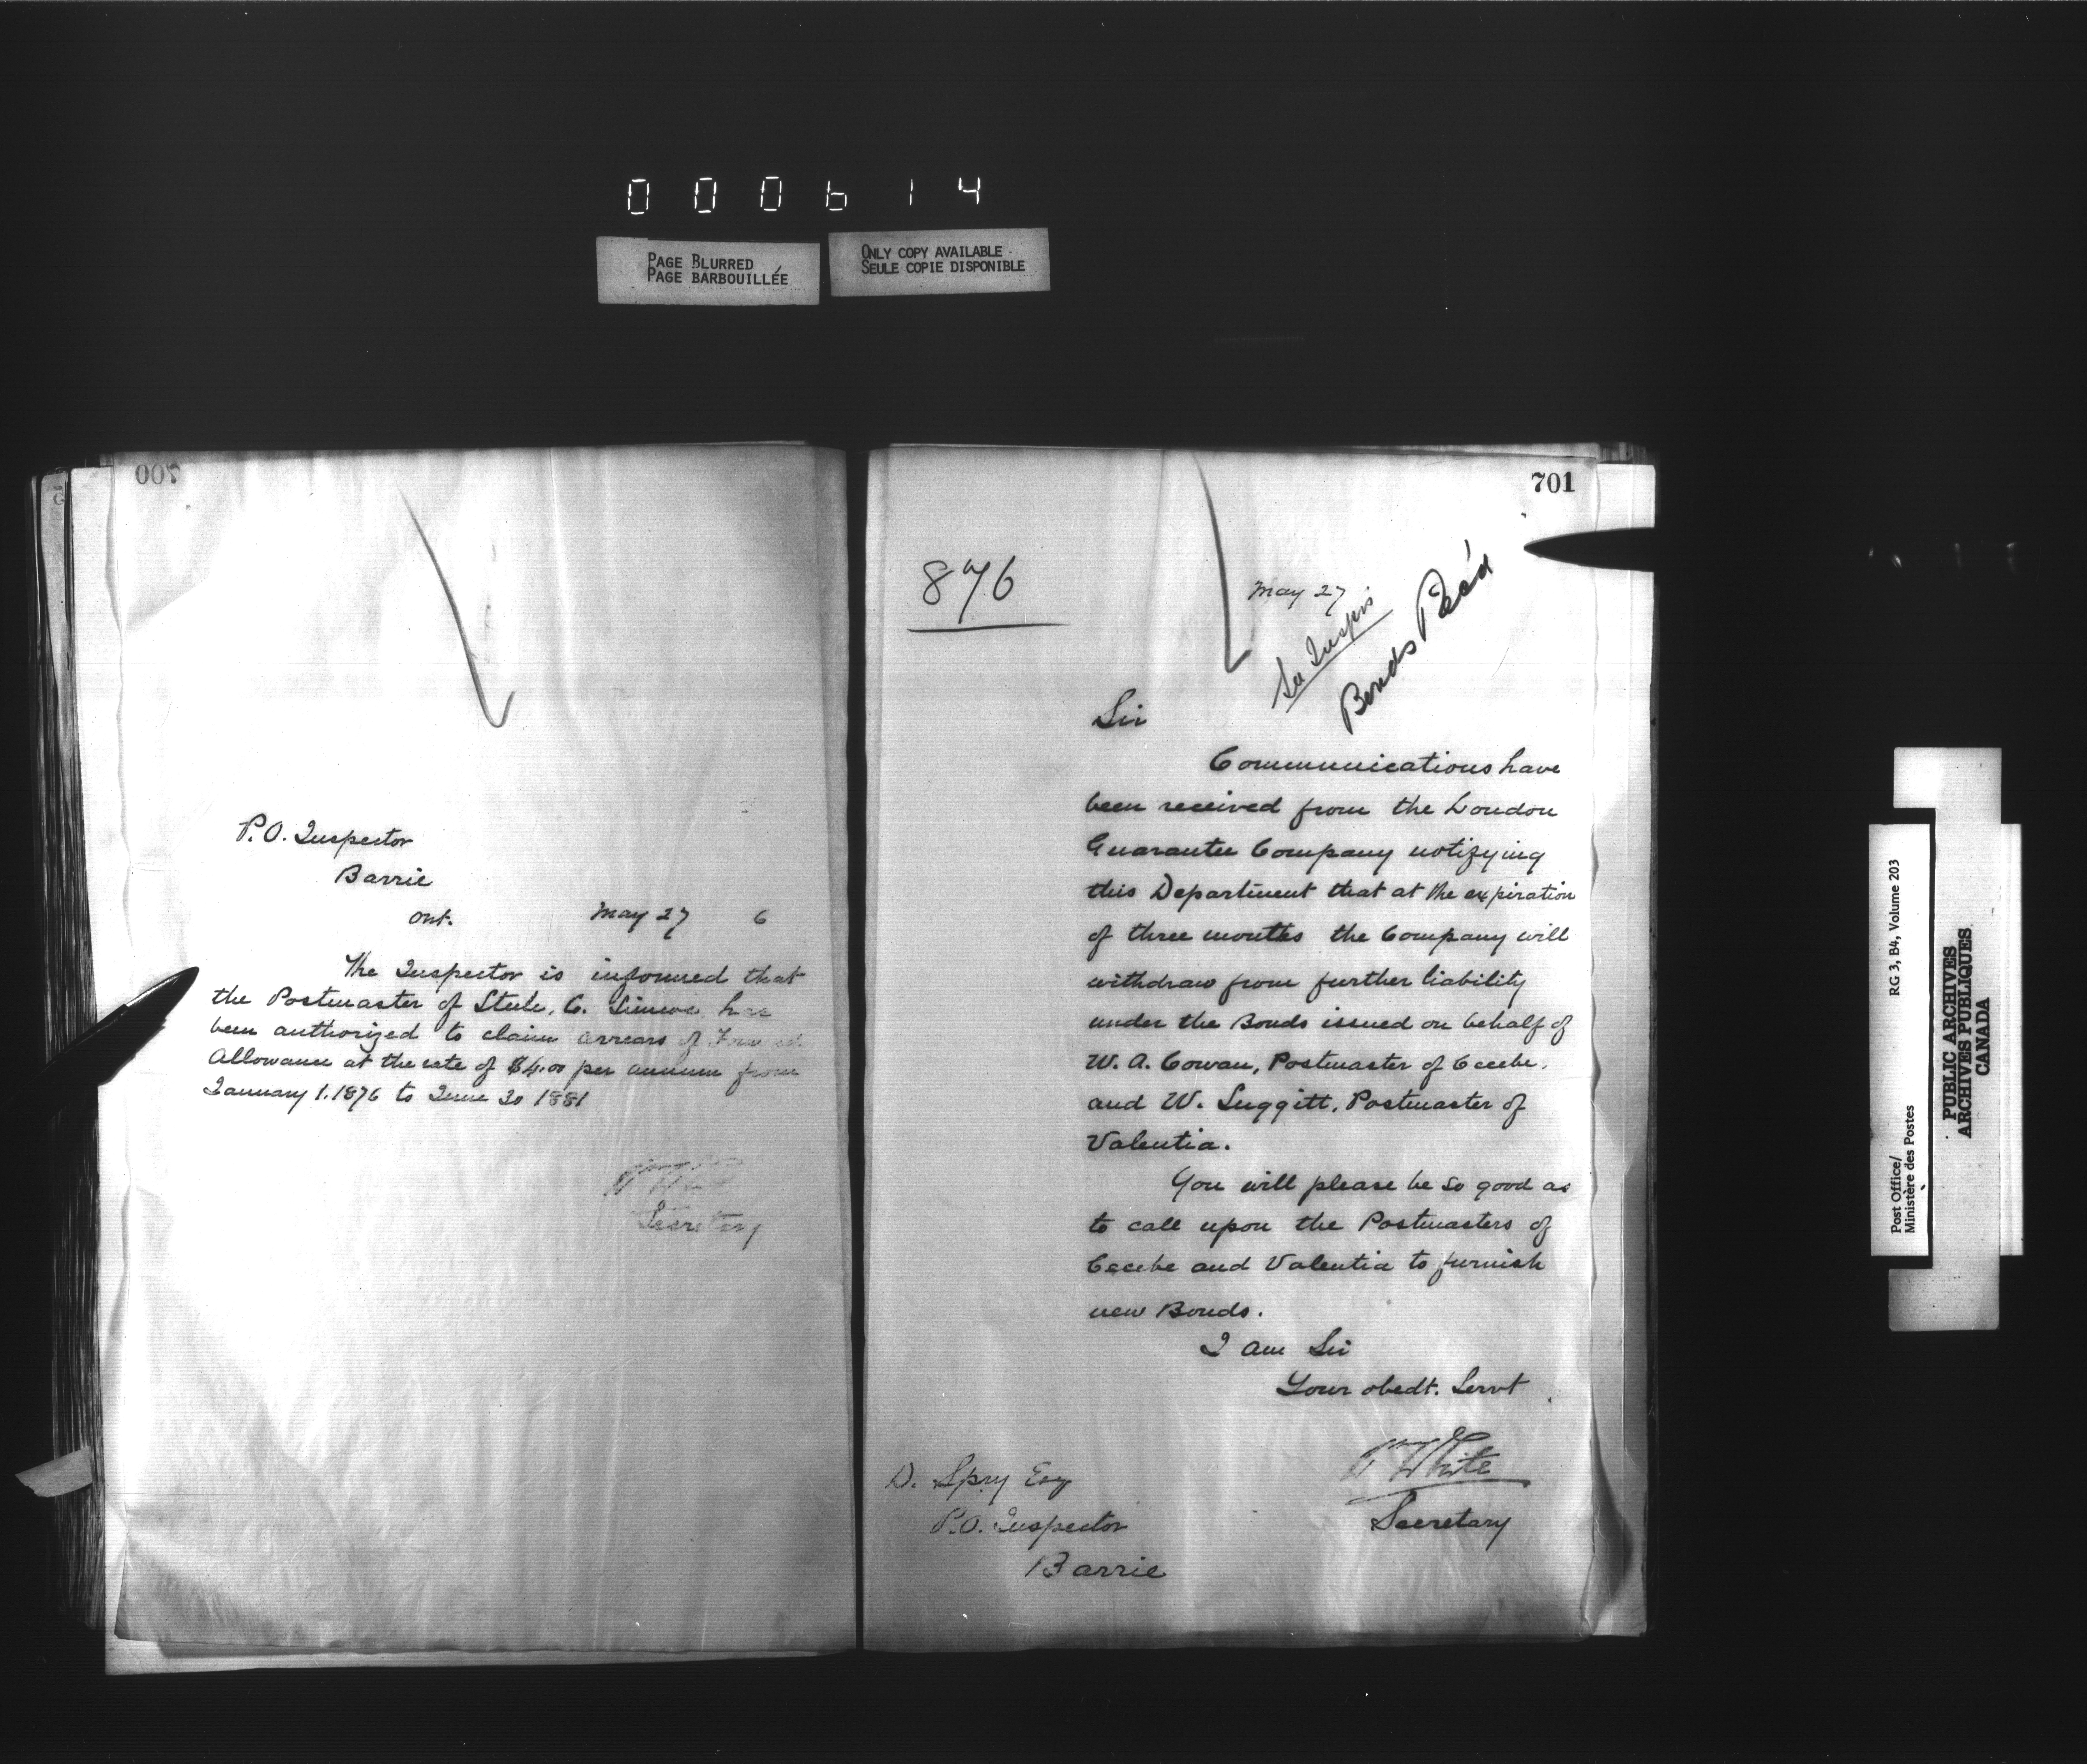 000614
PAGE BLURRED
PAGE BARBOUILLÉE
ONLY COPY AVAILABLE
SEULE COPIE DISPONIBLE
700
P.O. Inspector
Barrie
Ont.
May 27 6
The Inspector is informed that
the Postmaster of Steele, C. Simcoe has
been authorized to claim arrears of Forward
Allowance at the rate of $4.00 per annum from
January 1. 1876 to June 30 1881
Secretary
701
876
May 27
Bonds Rec'd
Sir
Communications have
been received from the London
Guarantee Company notifying
this Department that at the expiration
of three months the Company will
withdraw from further liability
under the Bonds issued on behalf of
W. A. Cowan, Postmaster of Cecebe,
and W. Suggitt, Postmaster of
Valentia.
You will please be so good as
to call upon the Postmasters of
Cecebe and Valentia to furnish
new Bonds.
I am Sir
Your obedt. Servt
White
Secretary
D. Spry Esq
P.O. Inspector
Barrie
Post Office/
Ministère des Postes
RG 3, B4, Volume 203
PUBLIC ARCHIVES
ARCHIVES PUBLIQUES
CANADA